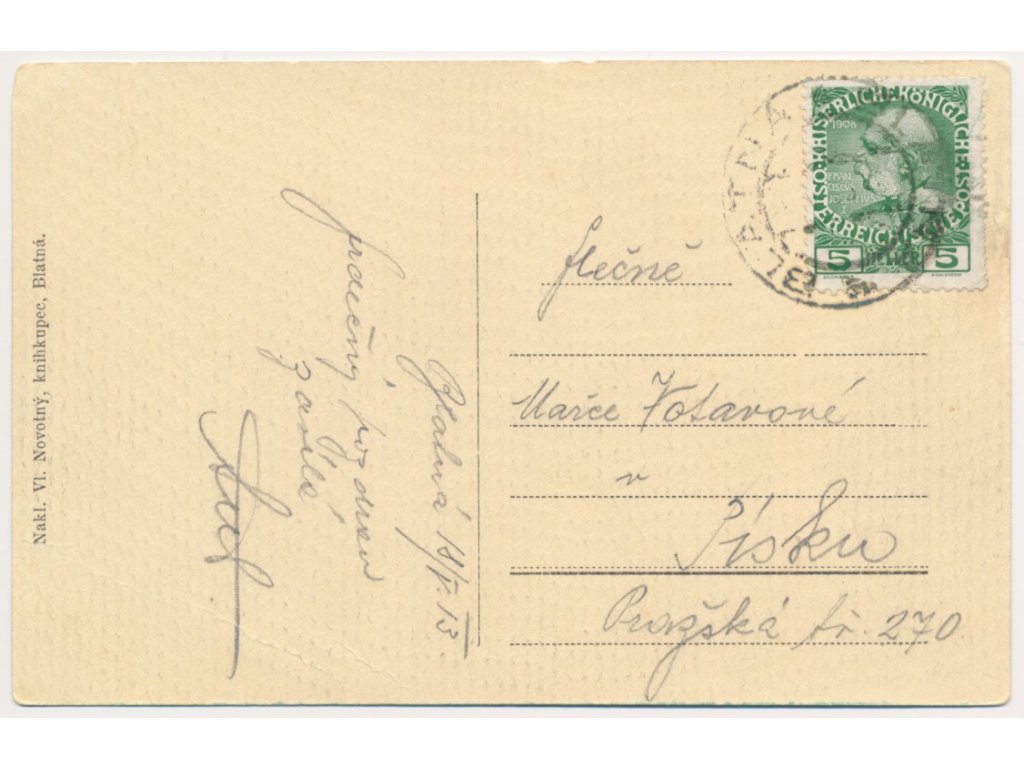 Nakl. Vl. Novotný, knihkupec, Blatná.
Blatná
srdečný pozdrav
zasílá
KAISERLICHE KÖNIGLICHE
ÖSTERREICHISCHE POST
1908
FRAN
CISCUS
JOSEPHUS
I
5 HELLER 5
BLATNÁ
Slečně
Mařce Votavové
v
Písku
Pražská tř. 270